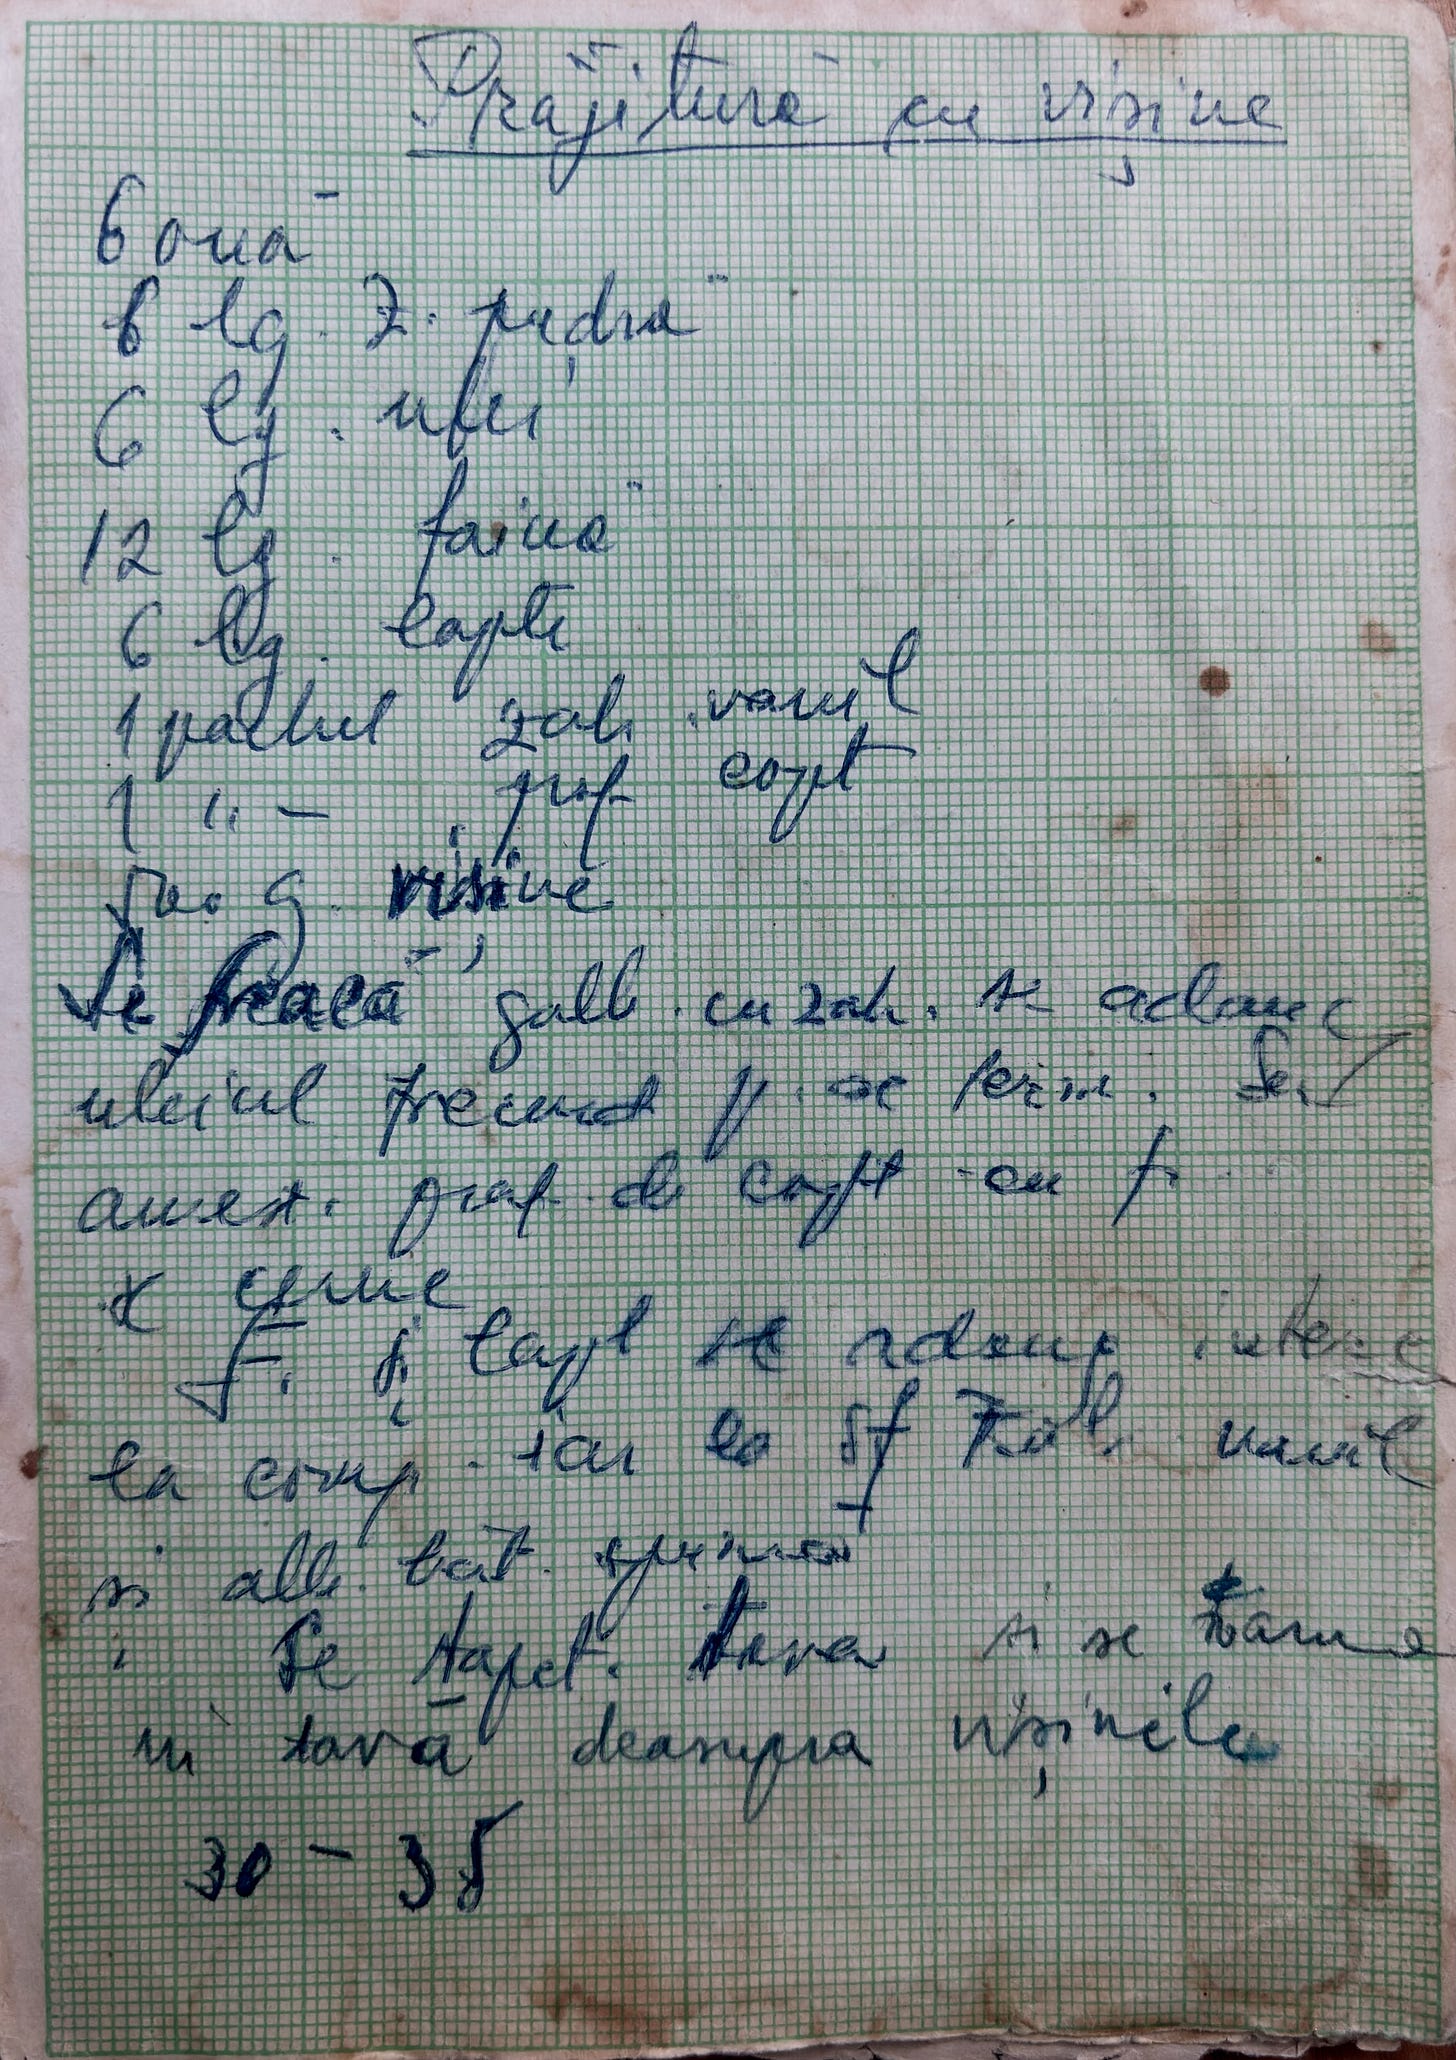 Prăjitură cu vișine
6 ouă
6 lg. z. pudră
6 lg. ulei
12 lg. faină
6 lg. lapte
1 pachet zah. vanil
1 " – praf copt
500 g. vișine
Se freacă galb. cu zah. se adaug
uleiul frecund p. se term. Se
amest. praf. de copt cu f.
se cerne
F. și lapt se adaug intere
la comp. iar la sf zah. vanil
și alb. băt. spumă
Se tapet. tava și se toarnă
in tavă deasupra vișinele
30 – 35